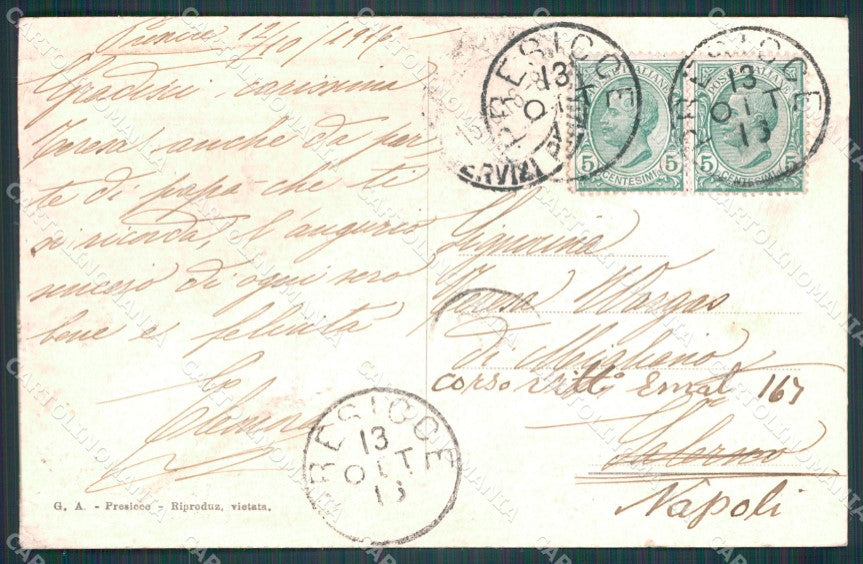 12/10/1916
Gradisci carissima
Teresa, anche da par-
te di papà che ti
si ricorda, l'augurio
sincero di ogni vero
bene e felicità
PRESICCE
13
OTT
13
PRESICCE
13
OTT
13
SERVIZI POSTALI
POSTE ITALIANE
5 CENTESIMI 5
POSTE ITALIANE
5 CENTESIMI 5
Signorina
Teresa Vargas
di Migliano
corso Vitt. Emal. 167
Salerno
Napoli
PRESICCE
13
OTT
13
G. A. - Presicce - Riproduz. vietata.
CARTOLINOMANIA